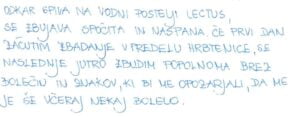 ODKAR SPIVA NA VODNI POSTELJI LECTUS,
SE ZBUJAVA SPOČITA IN NASPANA. ČE PRVI DAN
ZAČUTIM ZBADANJE V PREDELU HRBTENICE, SE
NASLEDNJE JUTRO ZBUDIM POPOLNOMA BREZ
BOLEČIN IN ZNAKOV, KI BI ME OPOZARJALI, DA ME
JE ŠE VČERAJ NEKAJ BOLELO.